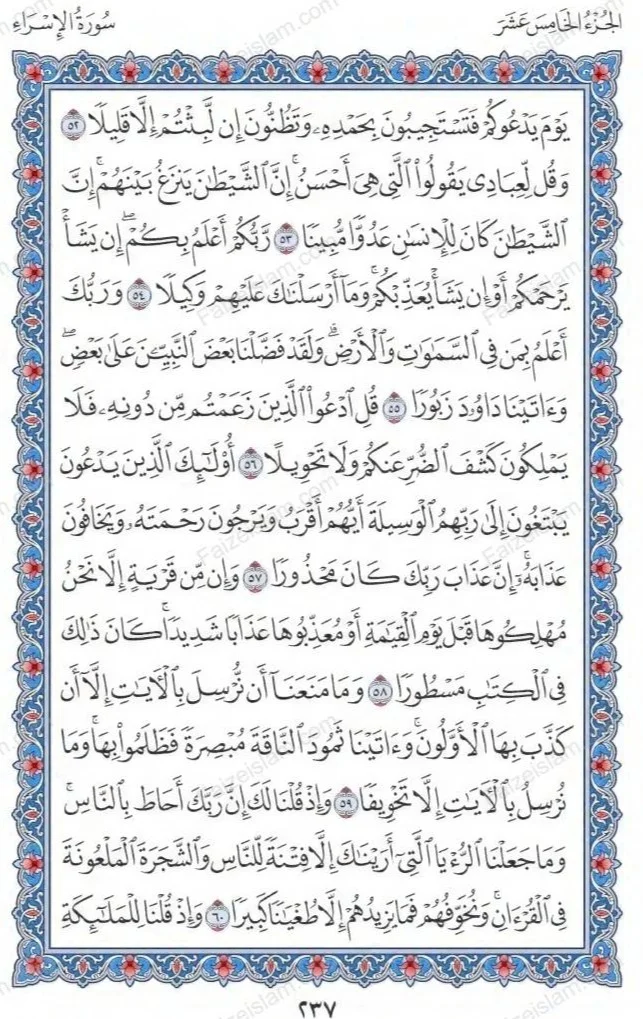 الجُزْءُ الخَامِسَ عَشَرَ
سُورَةُ الإِسْرَاءِ
يَوْمَ يَدْعُوكُمْ فَتَسْتَجِيبُونَ بِحَمْدِهِۦ وَتَظُنُّونَ إِن لَّبِثْتُمْ إِلَّا قَلِيلًا ٥٢
وَقُل لِّعِبَادِى يَقُولُوا۟ ٱلَّتِى هِىَ أَحْسَنُ ۚ إِنَّ ٱلشَّيْطَٰنَ يَنزَغُ بَيْنَهُمْ ۚ إِنَّ
ٱلشَّيْطَٰنَ كَانَ لِلْإِنسَٰنِ عَدُوًّا مُّبِينًا ٥٣ رَّبُّكُمْ أَعْلَمُ بِكُمْ ۖ إِن يَشَأْ
يَرْحَمْكُمْ أَوْ إِن يَشَأْ يُعَذِّبْكُمْ ۚ وَمَآ أَرْسَلْنَٰكَ عَلَيْهِمْ وَكِيلًا ٥٤ وَرَبُّكَ
أَعْلَمُ بِمَن فِى ٱلسَّمَٰوَٰتِ وَٱلْأَرْضِ ۗ وَلَقَدْ فَضَّلْنَا بَعْضَ ٱلنَّبِيِّـۧنَ عَلَىٰ بَعْضٍ ۖ
وَءَاتَيْنَا دَاوُۥدَ زَبُورًا ٥٥ قُلِ ٱدْعُوا۟ ٱلَّذِينَ زَعَمْتُم مِّن دُونِهِۦ فَلَا
يَمْلِكُونَ كَشْفَ ٱلضُّرِّ عَنكُمْ وَلَا تَحْوِيلًا ٥٦ أُو۟لَٰٓئِكَ ٱلَّذِينَ يَدْعُونَ
يَبْتَغُونَ إِلَىٰ رَبِّهِمُ ٱلْوَسِيلَةَ أَيُّهُمْ أَقْرَبُ وَيَرْجُونَ رَحْمَتَهُۥ وَيَخَافُونَ
عَذَابَهُۥٓ ۚ إِنَّ عَذَابَ رَبِّكَ كَانَ مَحْذُورًا ٥٧ وَإِن مِّن قَرْيَةٍ إِلَّا نَحْنُ
مُهْلِكُوهَا قَبْلَ يَوْمِ ٱلْقِيَٰمَةِ أَوْ مُعَذِّبُوهَا عَذَابًا شَدِيدًا ۚ كَانَ ذَٰلِكَ
فِى ٱلْكِتَٰبِ مَسْطُورًا ٥٨ وَمَا مَنَعَنَآ أَن نُّرْسِلَ بِٱلْـَٔايَٰتِ إِلَّآ أَن
كَذَّبَ بِهَا ٱلْأَوَّلُونَ ۚ وَءَاتَيْنَا ثَمُودَ ٱلنَّاقَةَ مُبْصِرَةً فَظَلَمُوا۟ بِهَا ۚ وَمَا
نُرْسِلُ بِٱلْـَٔايَٰتِ إِلَّا تَخْوِيفًا ٥٩ وَإِذْ قُلْنَا لَكَ إِنَّ رَبَّكَ أَحَاطَ بِٱلنَّاسِ ۚ
وَمَا جَعَلْنَا ٱلرُّءْيَا ٱلَّتِىٓ أَرَيْنَٰكَ إِلَّا فِتْنَةً لِّلنَّاسِ وَٱلشَّجَرَةَ ٱلْمَلْعُونَةَ
فِى ٱلْقُرْءَانِ ۚ وَنُخَوِّفُهُمْ فَمَا يَزِيدُهُمْ إِلَّا طُغْيَٰنًا كَبِيرًا ٦٠ وَإِذْ قُلْنَا لِلْمَلَٰٓئِكَةِ
٢٣٧
Faizeislam.com